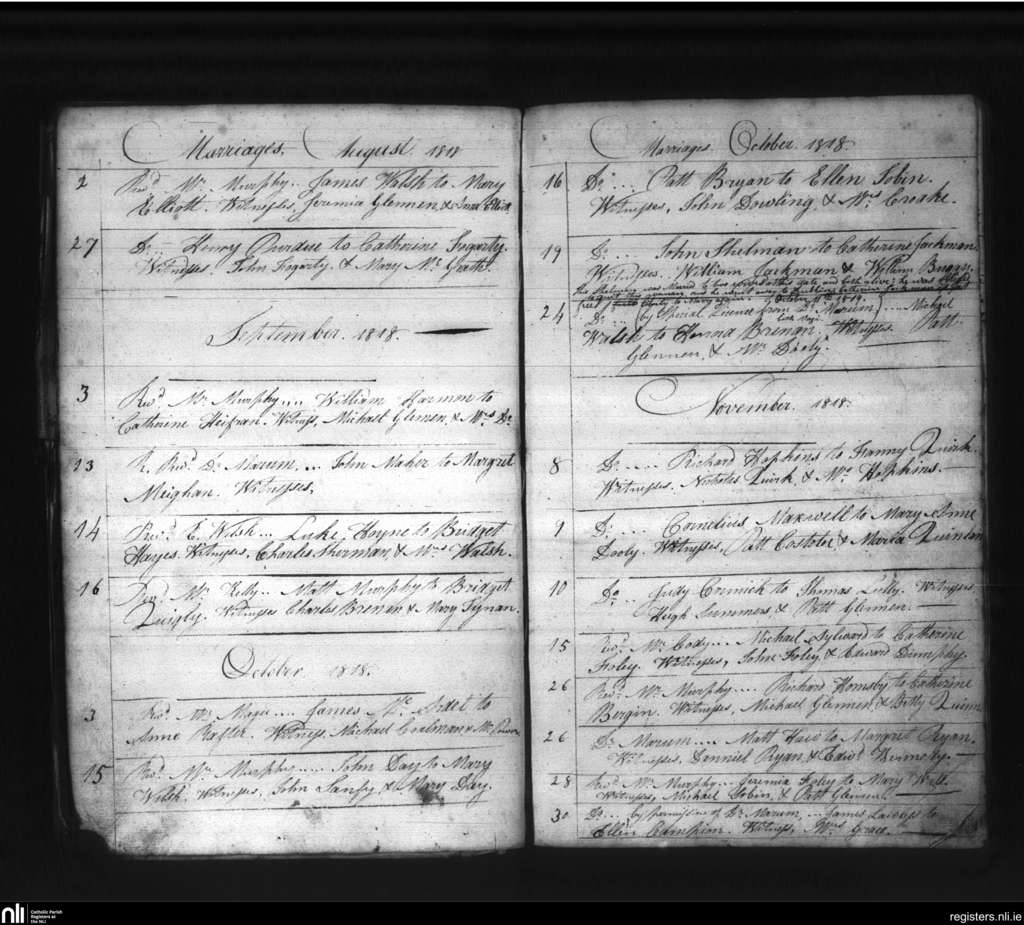 Marriages. August. 1818
2 Revd. Mr. Murphy.. James Walsh to Mary
Elliott. Witnesses, Jeremia Glennen, &
27 Do. Henry Purdue to Catherine Fogarty.
Witnesses. John Fogarty. & Mary Mc Grath.
September. 1818.
3 Revd. Mr. Murphy.... William Harmon to
Catherine Heifran. Witness, Michael Glennen, & Mrs. Do.
13 R. Revd. Dr. Marum, ... John Maher to Margret
Meighan. Witnesses,
14 Revd. E. Walsh... Luke Hoyne to Bridgett
Hayes. Witnesses, Charles Sherman, & Mrs. Walsh.
16 Revd. Mr. Kelly.. Matt Murphy to Bridget
Quigly. Witnesses Charles Brenan & Mary Tynan.
October 1818.
3 Revd. Mr. Magee.... James Mc to
Anne Rafter. Witness, Michael & Mr. Power
15 Revd. Mr. Murphy..... John Day to Mary
Walsh. Witnesses, John & Mary Day.
Marriages. October. 1818.
16 Do. ... Patt Bryan to Ellen Tobin.
Witnesses, John Dowling, & Mrs. Croake.
19 Do. ... John Shelman to Catherine Jackman
Witnesses. William Jackman & William Buggy.
This Shelman was Married to two others at this date and both alive; he was
to Catherine Jackman
free to marry again. October 1819.
24 Do. ... by Special Licence from Dr. Marum ... Michael
Walsh to Hanna Brenan. Witnesses. Patt
Glennen, & Mr. Dooly.
November. 1818.
8 Do. .... Richard Hopkins to Fanny Quirk.
Witnesses. Nicholas Quirk, & Mrs. Hopkins.
9 Do. ... Cornelius Maxwell to Mary Anne
Dooly. Witnesses, Patt Costoloe, & Maria Quinlan
10 Do. .. Judy Cormick to Thomas Lally. Witnesses
Hugh Summers & Patt Glennen.
15 Revd. Mr. Cody... Michael Aylward to Catherine
Foley. Witnesses, John Foley, & Edward Dunphy.
26 Revd. Mr. Murphy.... Richard Hornsby to Catherine
Bergin. Witnesses, Michael Glennen, & Betty Quinn
26 Dr. Marum.... Matt to Margret Ryan.
Witnesses, Danniel Ryan, & Edwd. Dermody.
28 Revd. Mr. Murphy... Jeremia Foley to Mary
Witnesses, Michael Tobin, & Patt Glennen.
30 Do. .... by permission of Dr. Marum.... James to
Ellen Campion. Witness, Mrs. Grace.
nli Catholic Parish
Registers at
the NLI
registers.nli.ie